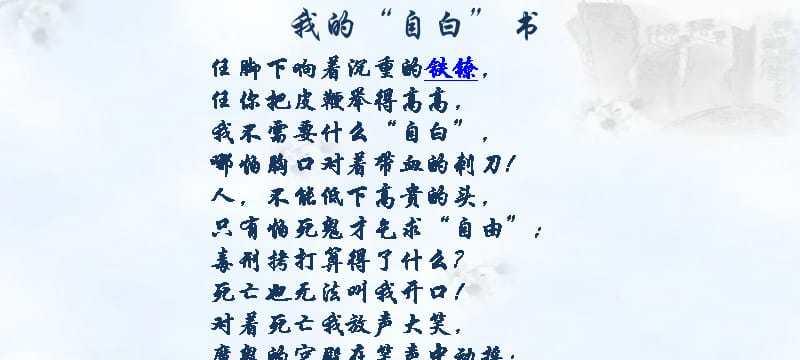 我的“自白”书
任脚下响着沉重的铁镣，
任你把皮鞭举得高高，
我不需要什么“自白”，
哪怕胸口对着带血的刺刀！
人，不能低下高贵的头，
只有怕死鬼才乞求“自由”；
毒刑拷打算得了什么？
死亡也无法叫我开口！
对着死亡我放声大笑，
魔鬼的宫殿在笑声中动摇；